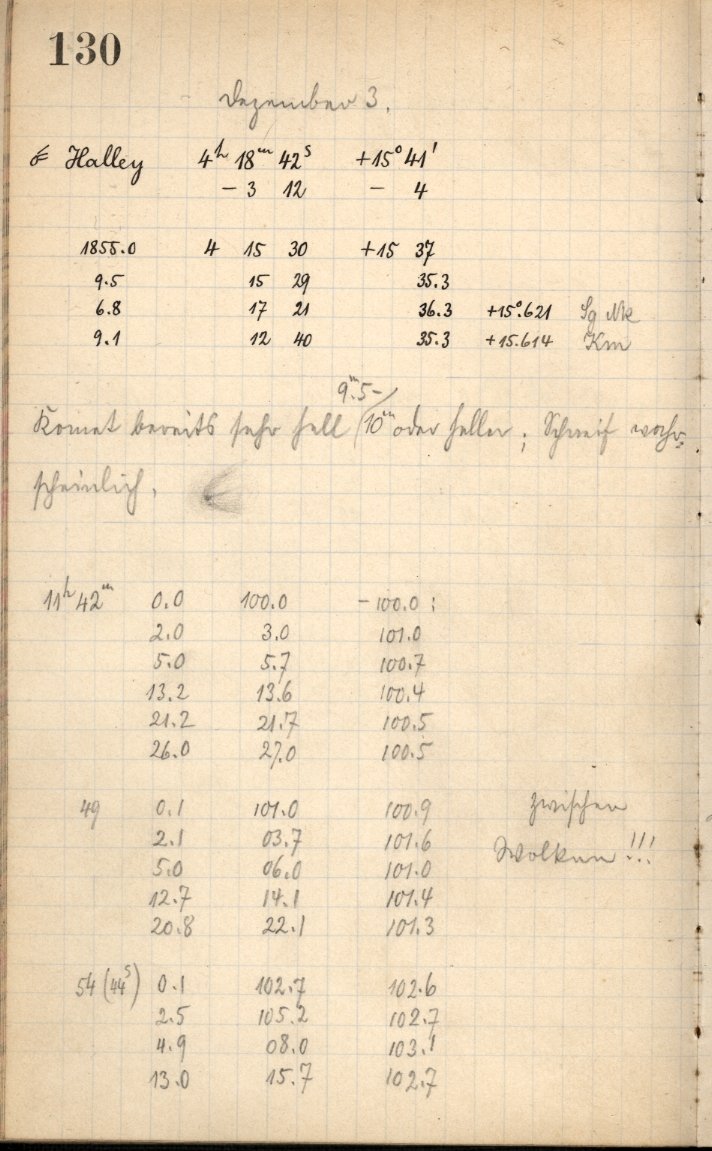 130
Dezember 3.
Halley 4ʰ 18ᵐ 42ˢ +15° 41'
− 3 12 − 4
1855.0 4 15 30 +15 37
9.5 15 29 35.3
6.8 17 21 36.3 +15°.621
9.1 12 40 35.3 +15.614 Km
9ᵐ.5–
Komet bereits sehr hell (10ᵐ oder heller; Schweif wahr=
scheinlich.
11ʰ 42ᵐ 0.0 100.0 −100.0 :
2.0 3.0 101.0
5.0 5.7 100.7
13.2 13.6 100.4
21.2 21.7 100.5
26.0 27.0 100.5
49 0.1 101.0 100.9 zwischen
2.1 03.7 101.6 Wolken!!!
5.0 06.0 101.0
12.7 14.1 101.4
20.8 22.1 101.3
54 (44ˢ) 0.1 102.7 102.6
2.5 105.2 102.7
4.9 08.0 103.1
13.0 15.7 102.7